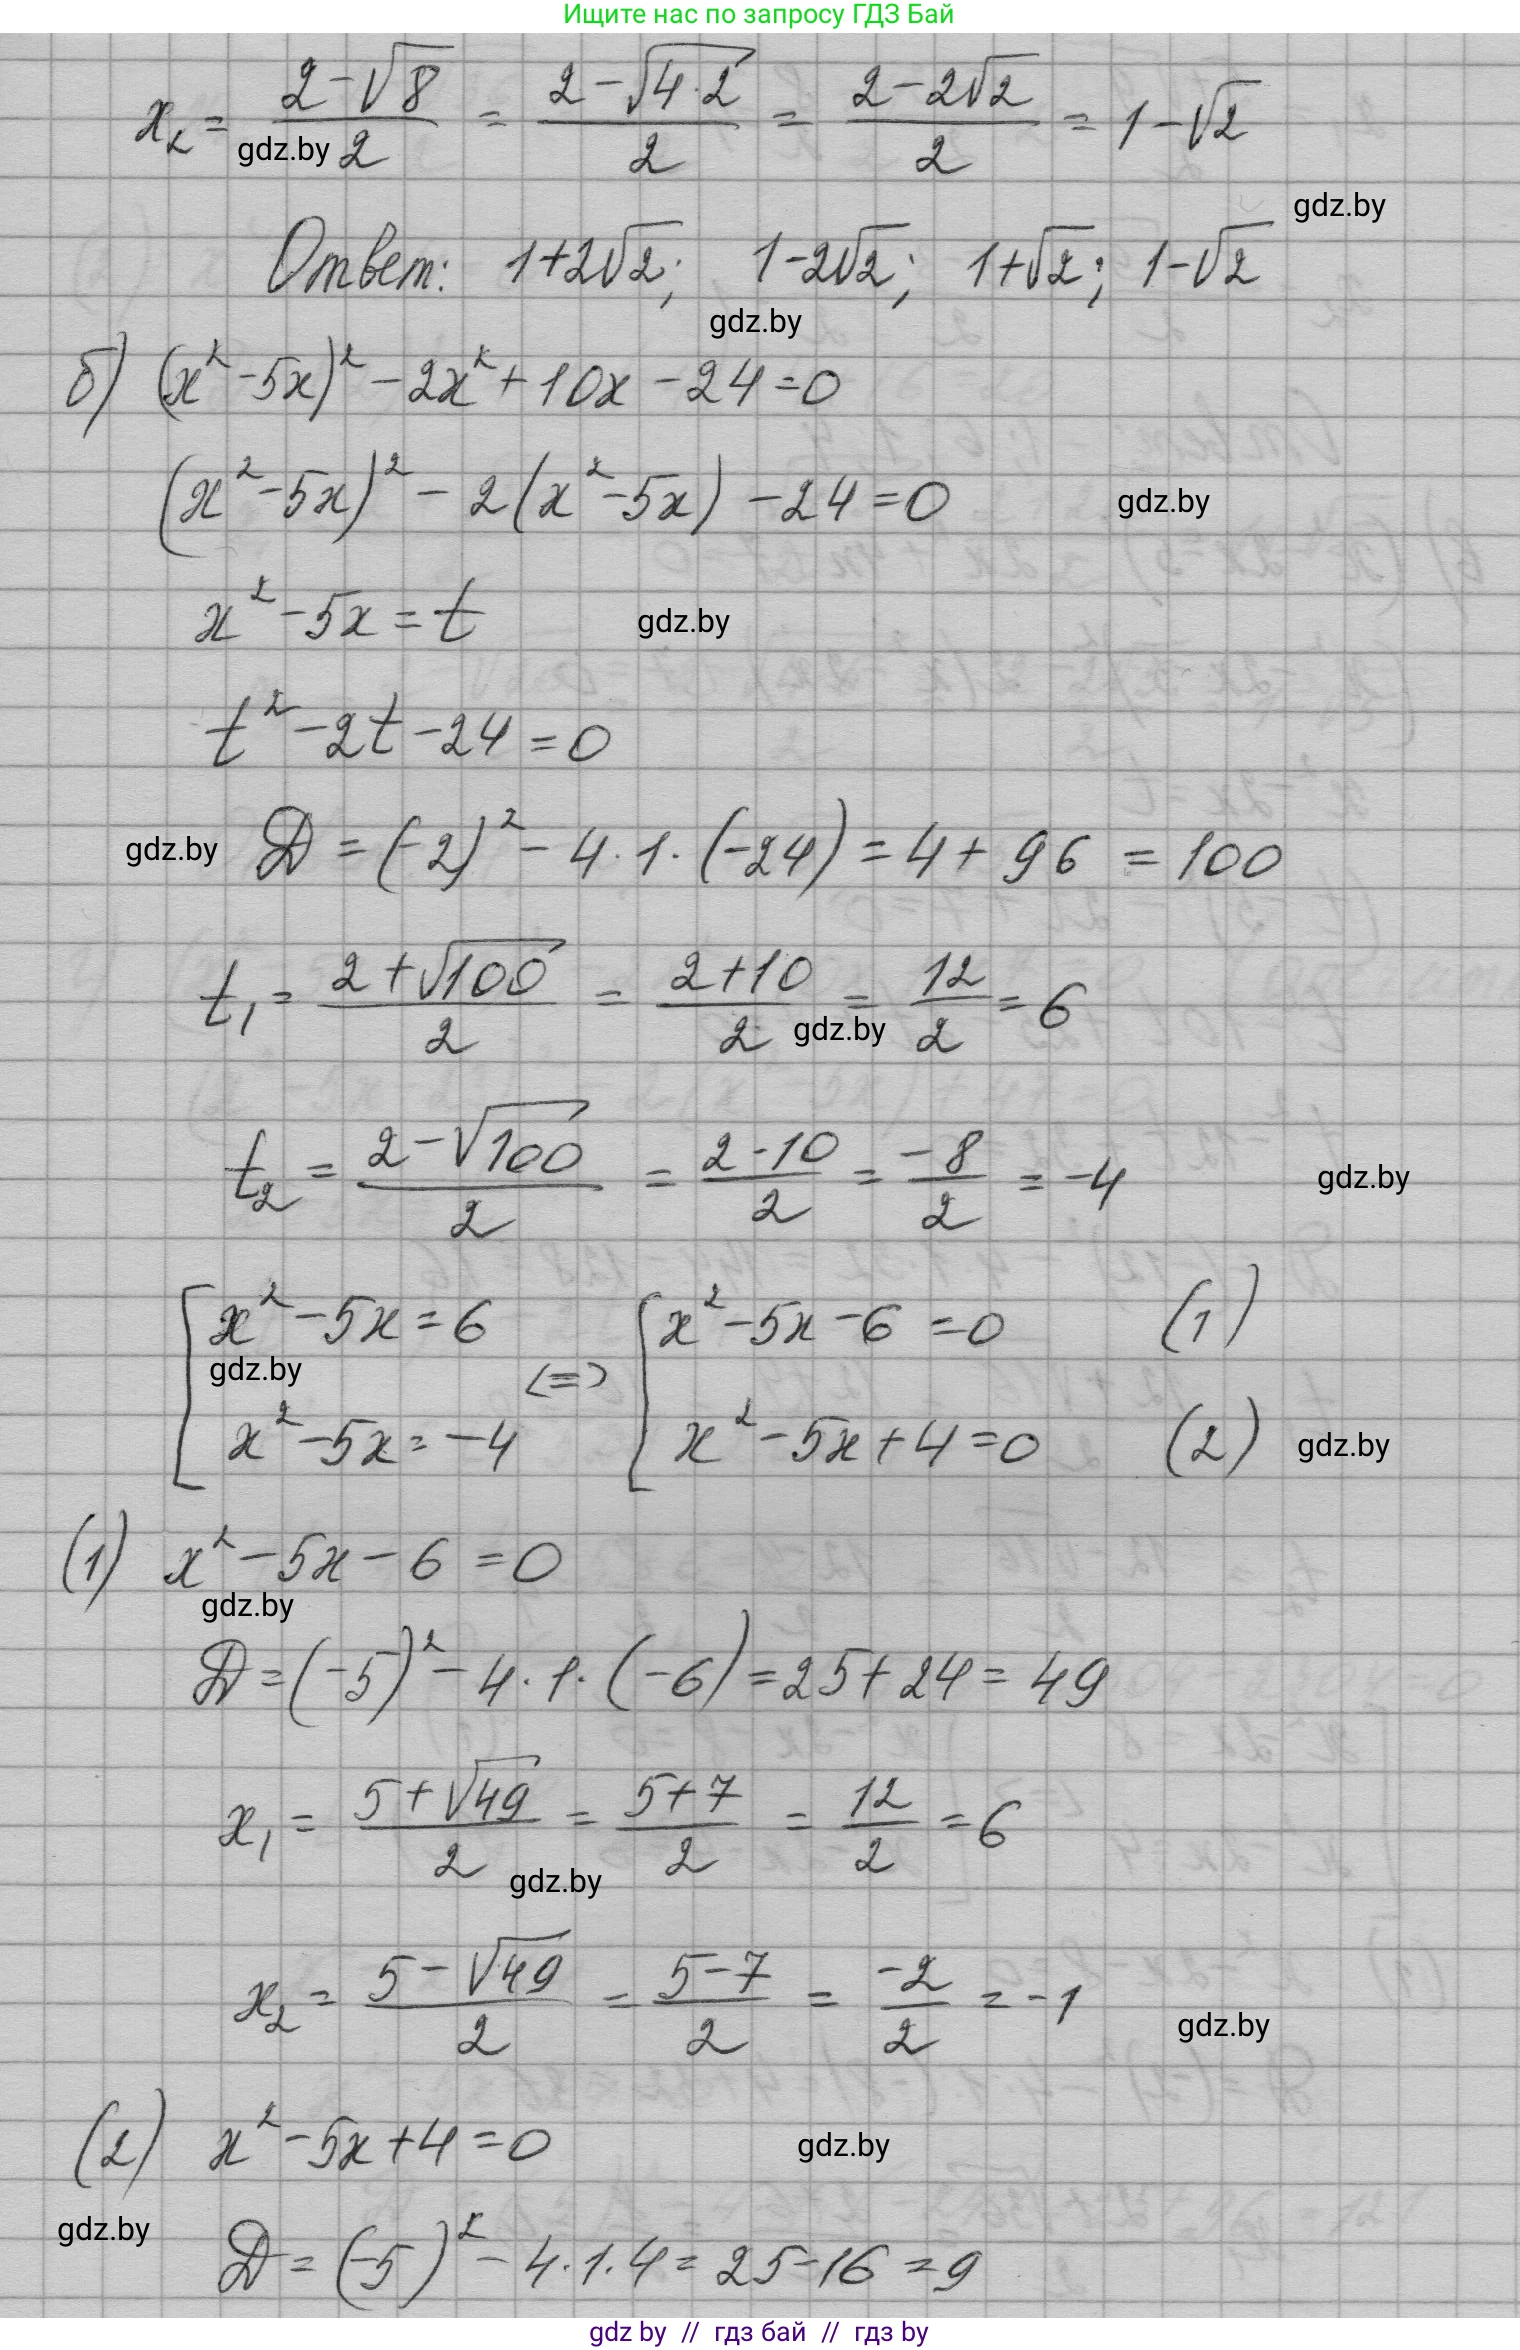 Ищите нас по запросу ГДЗ Бай
x₂ = (2-√8)/2 = (2-√(4·2))/2 = (2-2√2)/2 = 1-√2
gdz.by
gdz.by
Ответ: 1+2√2; 1-2√2; 1+√2; 1-√2
gdz.by
б) (x²-5x)² - 2x² + 10x - 24 = 0
(x²-5x)² - 2(x²-5x) - 24 = 0
gdz.by
x² - 5x = t
gdz.by
t² - 2t - 24 = 0
gdz.by
D = (-2)² - 4·1·(-24) = 4 + 96 = 100
t₁ = (2+√100)/2 = (2+10)/2 = 12/2 = 6
gdz.by
t₂ = (2-√100)/2 = (2-10)/2 = -8/2 = -4
gdz.by
[ x² - 5x = 6 <=> [ x² - 5x - 6 = 0 (1)
gdz.by
x² - 5x = -4 x² - 5x + 4 = 0 (2)
gdz.by
(1) x² - 5x - 6 = 0
gdz.by
D = (-5)² - 4·1·(-6) = 25 + 24 = 49
x₁ = (5+√49)/2 = (5+7)/2 = 12/2 = 6
gdz.by
x₂ = (5-√49)/2 = (5-7)/2 = -2/2 = -1
gdz.by
(2) x² - 5x + 4 = 0
gdz.by
gdz.by
D = (-5)² - 4·1·4 = 25 - 16 = 9
gdz by // гдз бай // гдз by